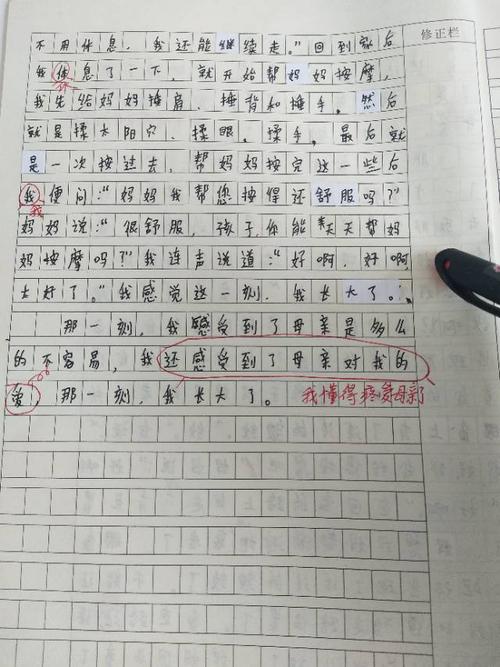 修正栏
不用休息，我还能继续走。”回到家后
我休息了一下，就开始帮妈妈按摩，
休
我先给妈妈捶肩、捶背和捶手，然后
就是揉太阳穴、揉眼、揉手，最后就
是一次按过去，帮妈妈按完这一些后
我便问：“妈妈我帮您按得还舒服吗？”
我
妈妈说：“很舒服，孩子，你能天天帮妈
妈按摩吗？”我连声说道：“好啊，好啊
太好了。”我感觉这一刻，我长大了。
那一刻，我感受到了母亲是多么
的不容易，我还感受到了母亲对我的
爱，那一刻，我长大了。
我懂得疼爱母亲了